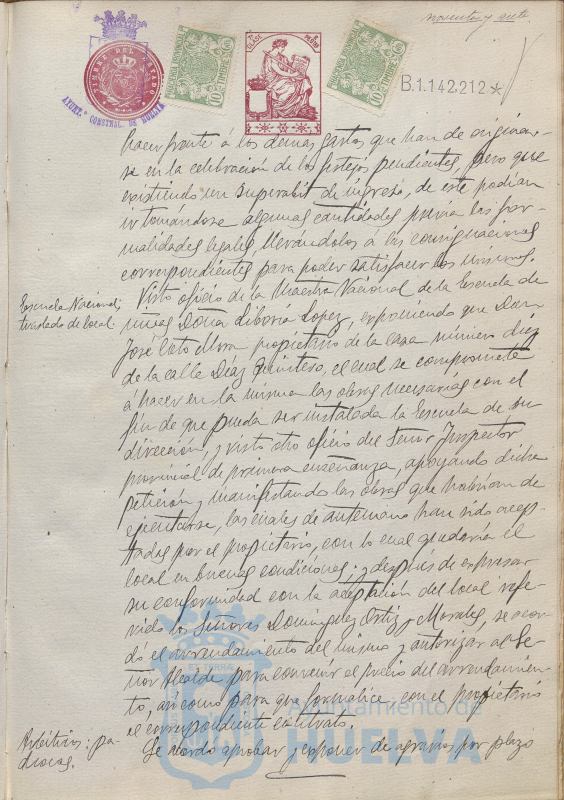 noventa y siete
TIMBRE DEL ESTADO
AYUNT.º CONSTNAL. DE HUELVA
7ª CLASE
B.1.142.212 *
hacer frente á los demas gastos que han de originar-
se en la celebración de los festejos pendientes, pero que
existiendo un superabit de ingreso, de este podían
ir tomandose algunas cantidades previa las for-
malidades legales, llevándolas á las consignaciones
correspondientes para poder satisfacer los mismos.
Escuela Nacional;
traslado de local.
Visto oficio de la Maestra Nacional de la Escuela de
niñas Doña Liboria Lopez, exponiendo que Don
José Mora propietario de la casa número diez
de la calle Díaz Quintero, el cual se compromete
á hacer en la misma las obras necesarias con el
fin de que pueda ser instalada la Escuela de su
dirección, y visto otro oficio del Señor Inspector
provincial de primera enseñanza, apoyando dicha
petición y manifestando las obras que habrían de
ejecutarse, las cuales de antemano han sido acep-
tadas por el propietario, con lo cual quedaría el
local en buenas condiciones; y después de expresar
su conformidad con la adaptación del local refe-
rido los Señores Dominguez Ortiz y Morales, se acor-
dó el arrendamiento del mismo y autorizar al Se-
ñor Alcalde para convenir el precio del arrendamien-
to, así como para que formalice con el propietario
el correspondiente contrato.
Arbitrios: pa-
drones.
Se acordó aprobar y exponer de agravios por plazo
Ayuntamiento de
HUELVA